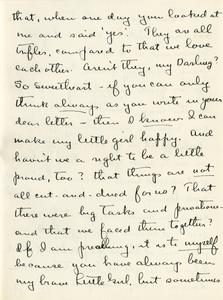 that, when one day you looked at
me and said 'yes'. They are all
trifles, compared to that we love
each other. Aren't they, my Darling?
So Sweetheart - if you can only
think always, as you write in your
dear letter - then I know I can
make my little girl happy. And
haven't we a right to be a little
proud, too? that things are not
all cut-and-dried for us? That
there were big tasks and privations -
and that we faced them together?
If I am preaching, it is to myself
because you have always been
my brave little girl, but sometimes